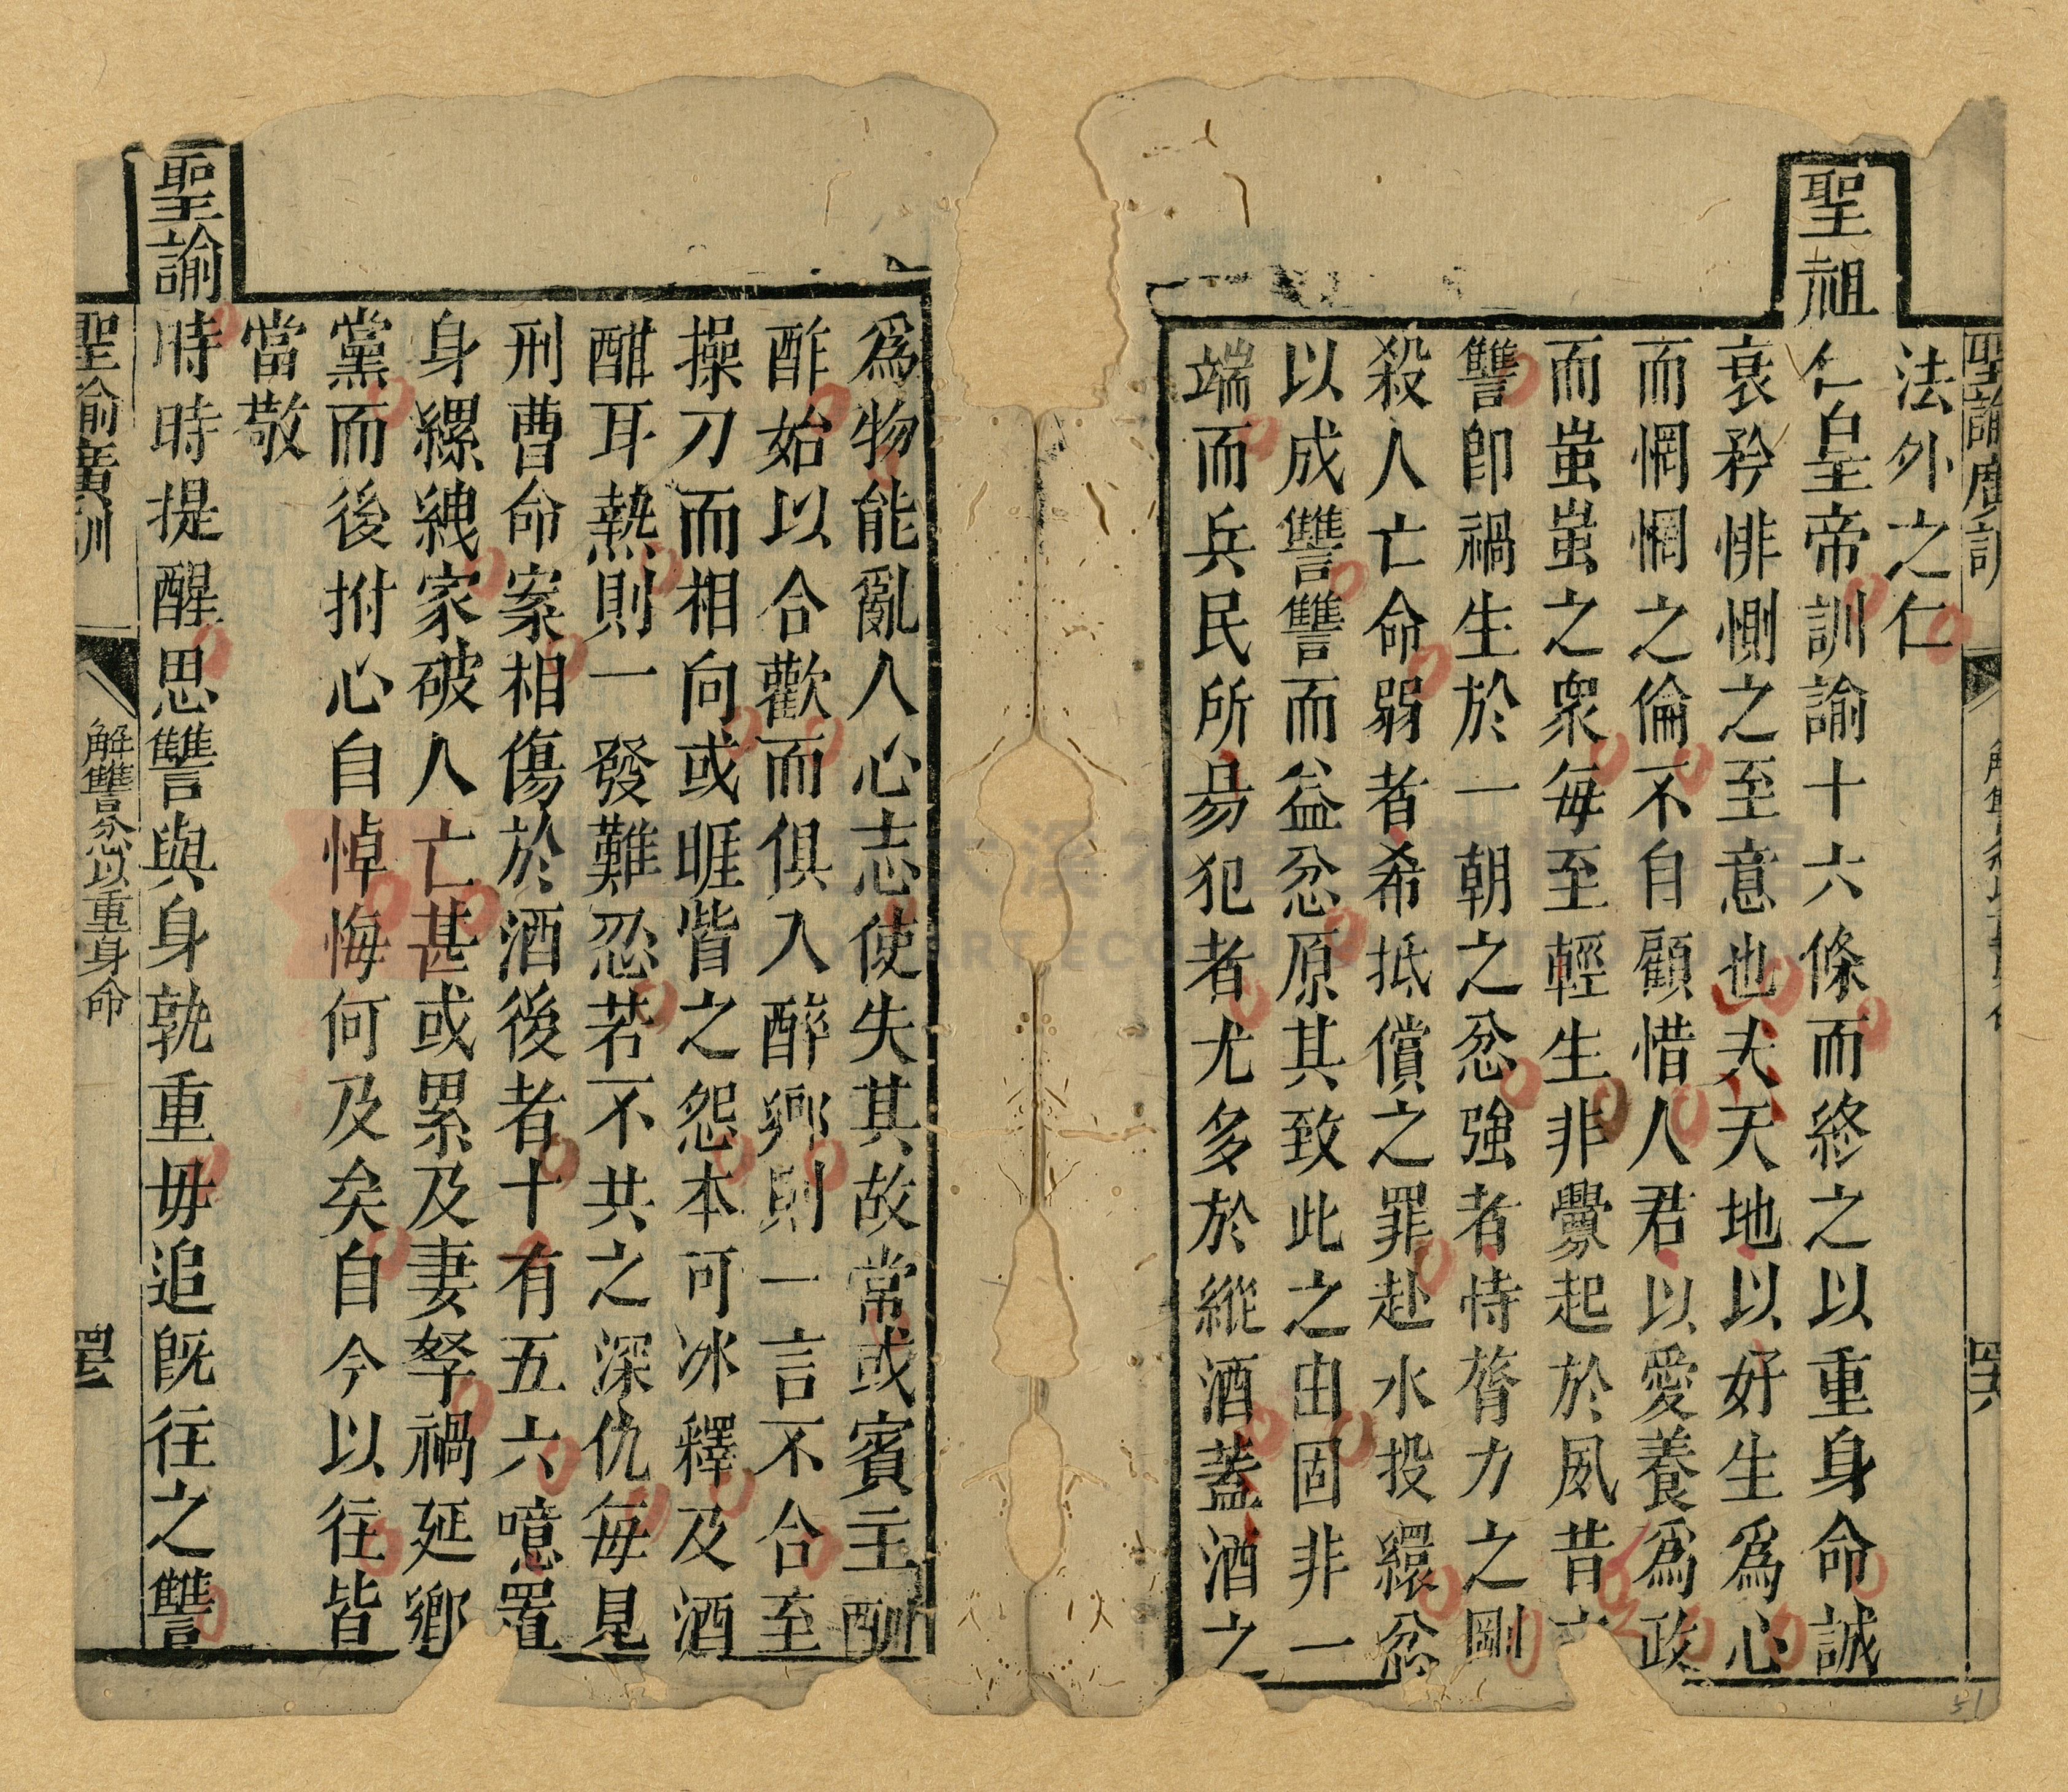 聖諭廣訓
解讐忿以重身命
四六
法外之仁
聖祖仁皇帝訓諭十六條而終之以重身命誠
衰矜悱惻之至意也夫天地以好生爲心
而惘惘之倫不自顧惜人君以愛養爲政
而蚩蚩之衆每至輕生非釁起於夙昔
讐卽禍生於一朝之忿強者恃膂力之剛
殺人亡命弱者希抵償之罪赴水投繯忿
以成讐讐而益忿原其致此之由固非一
端而兵民所昜犯者尤多於縱酒蓋酒之
爲物能亂人心志使失其故常或賓主酬
酢始以合歡而俱入醉鄉則一言不合至
操刀而相向或睚眥之怨本可冰釋及酒
酣耳熱則一發難忍若不共之深仇每見
刑曹命案相傷於酒後者十有五六噫置
身縲絏家破人亡甚或累及妻孥禍延鄉
黨而後拊心自悼悔何及矣自今以往皆
當敬
聖諭時時提醒思讐與身孰重毋追旣往之讐
聖諭廣訓
解讐忿以重身命
四五
51